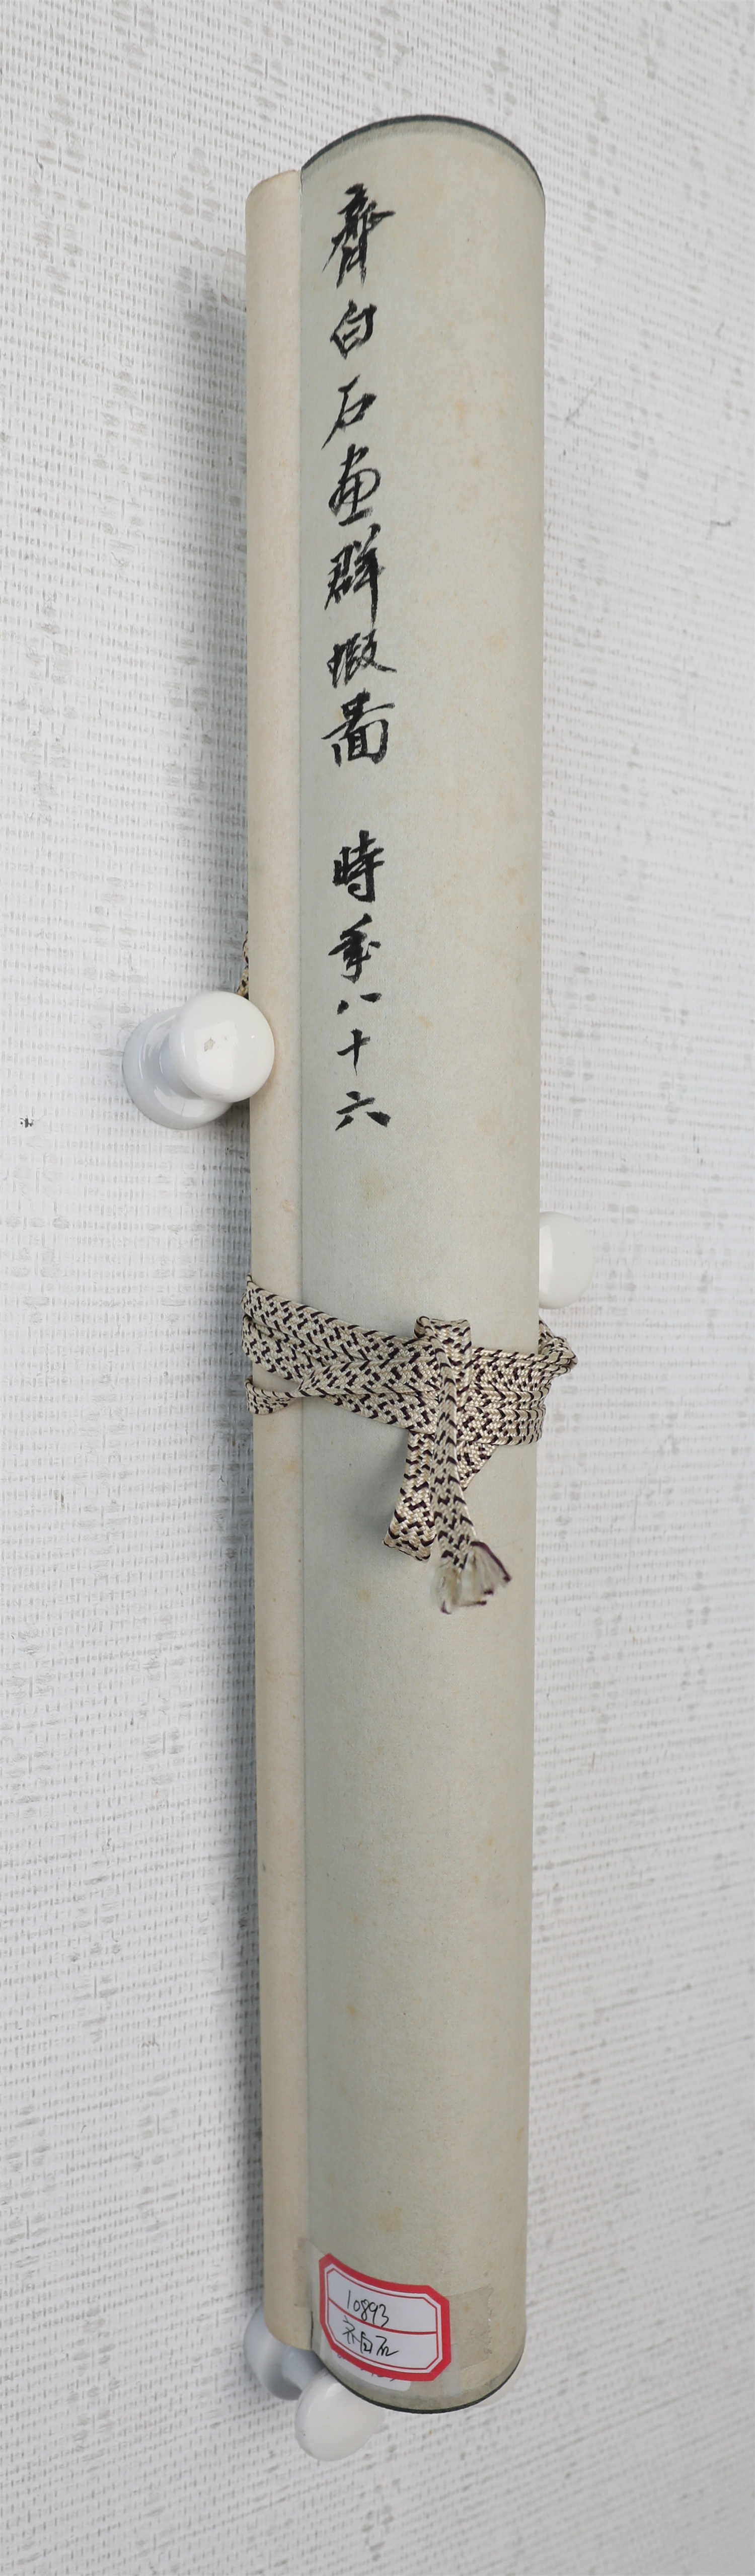 齊白石畫群蝦圖 時年八十六
10893
齐白石